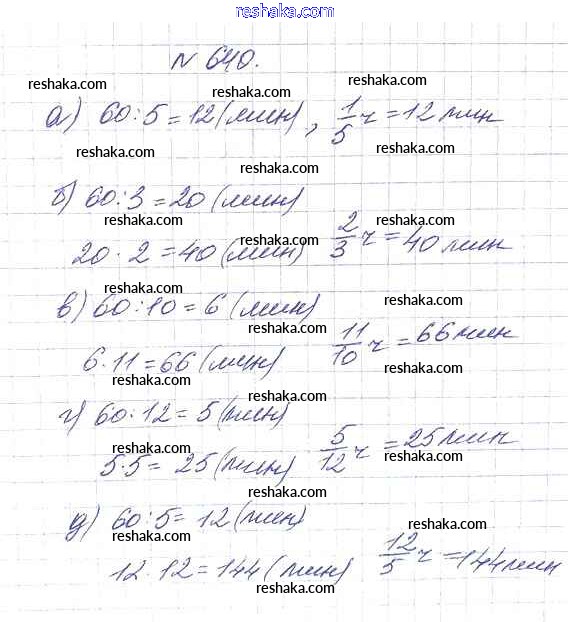 reshaka.com
№ 640.
reshaka.com reshaka.com
а) 60:5=12 (мин), 1/5 ч = 12 мин
reshaka.com reshaka.com
б) 60:3=20 (мин)
reshaka.com reshaka.com
20·2=40 (мин) 2/3 ч = 40 мин
reshaka.com reshaka.com
в) 60:10=6 (мин)
reshaka.com
6·11=66 (мин) 11/10 ч = 66 мин
reshaka.com reshaka.com
г) 60:12=5 (мин)
reshaka.com reshaka.com
5·5= 25 (мин) 5/12 ч = 25 мин
reshaka.com
д) 60:5= 12 (мин)
reshaka.com reshaka.com
12·12=144 (мин) 12/5 ч = 144 мин
reshaka.com
reshaka.com